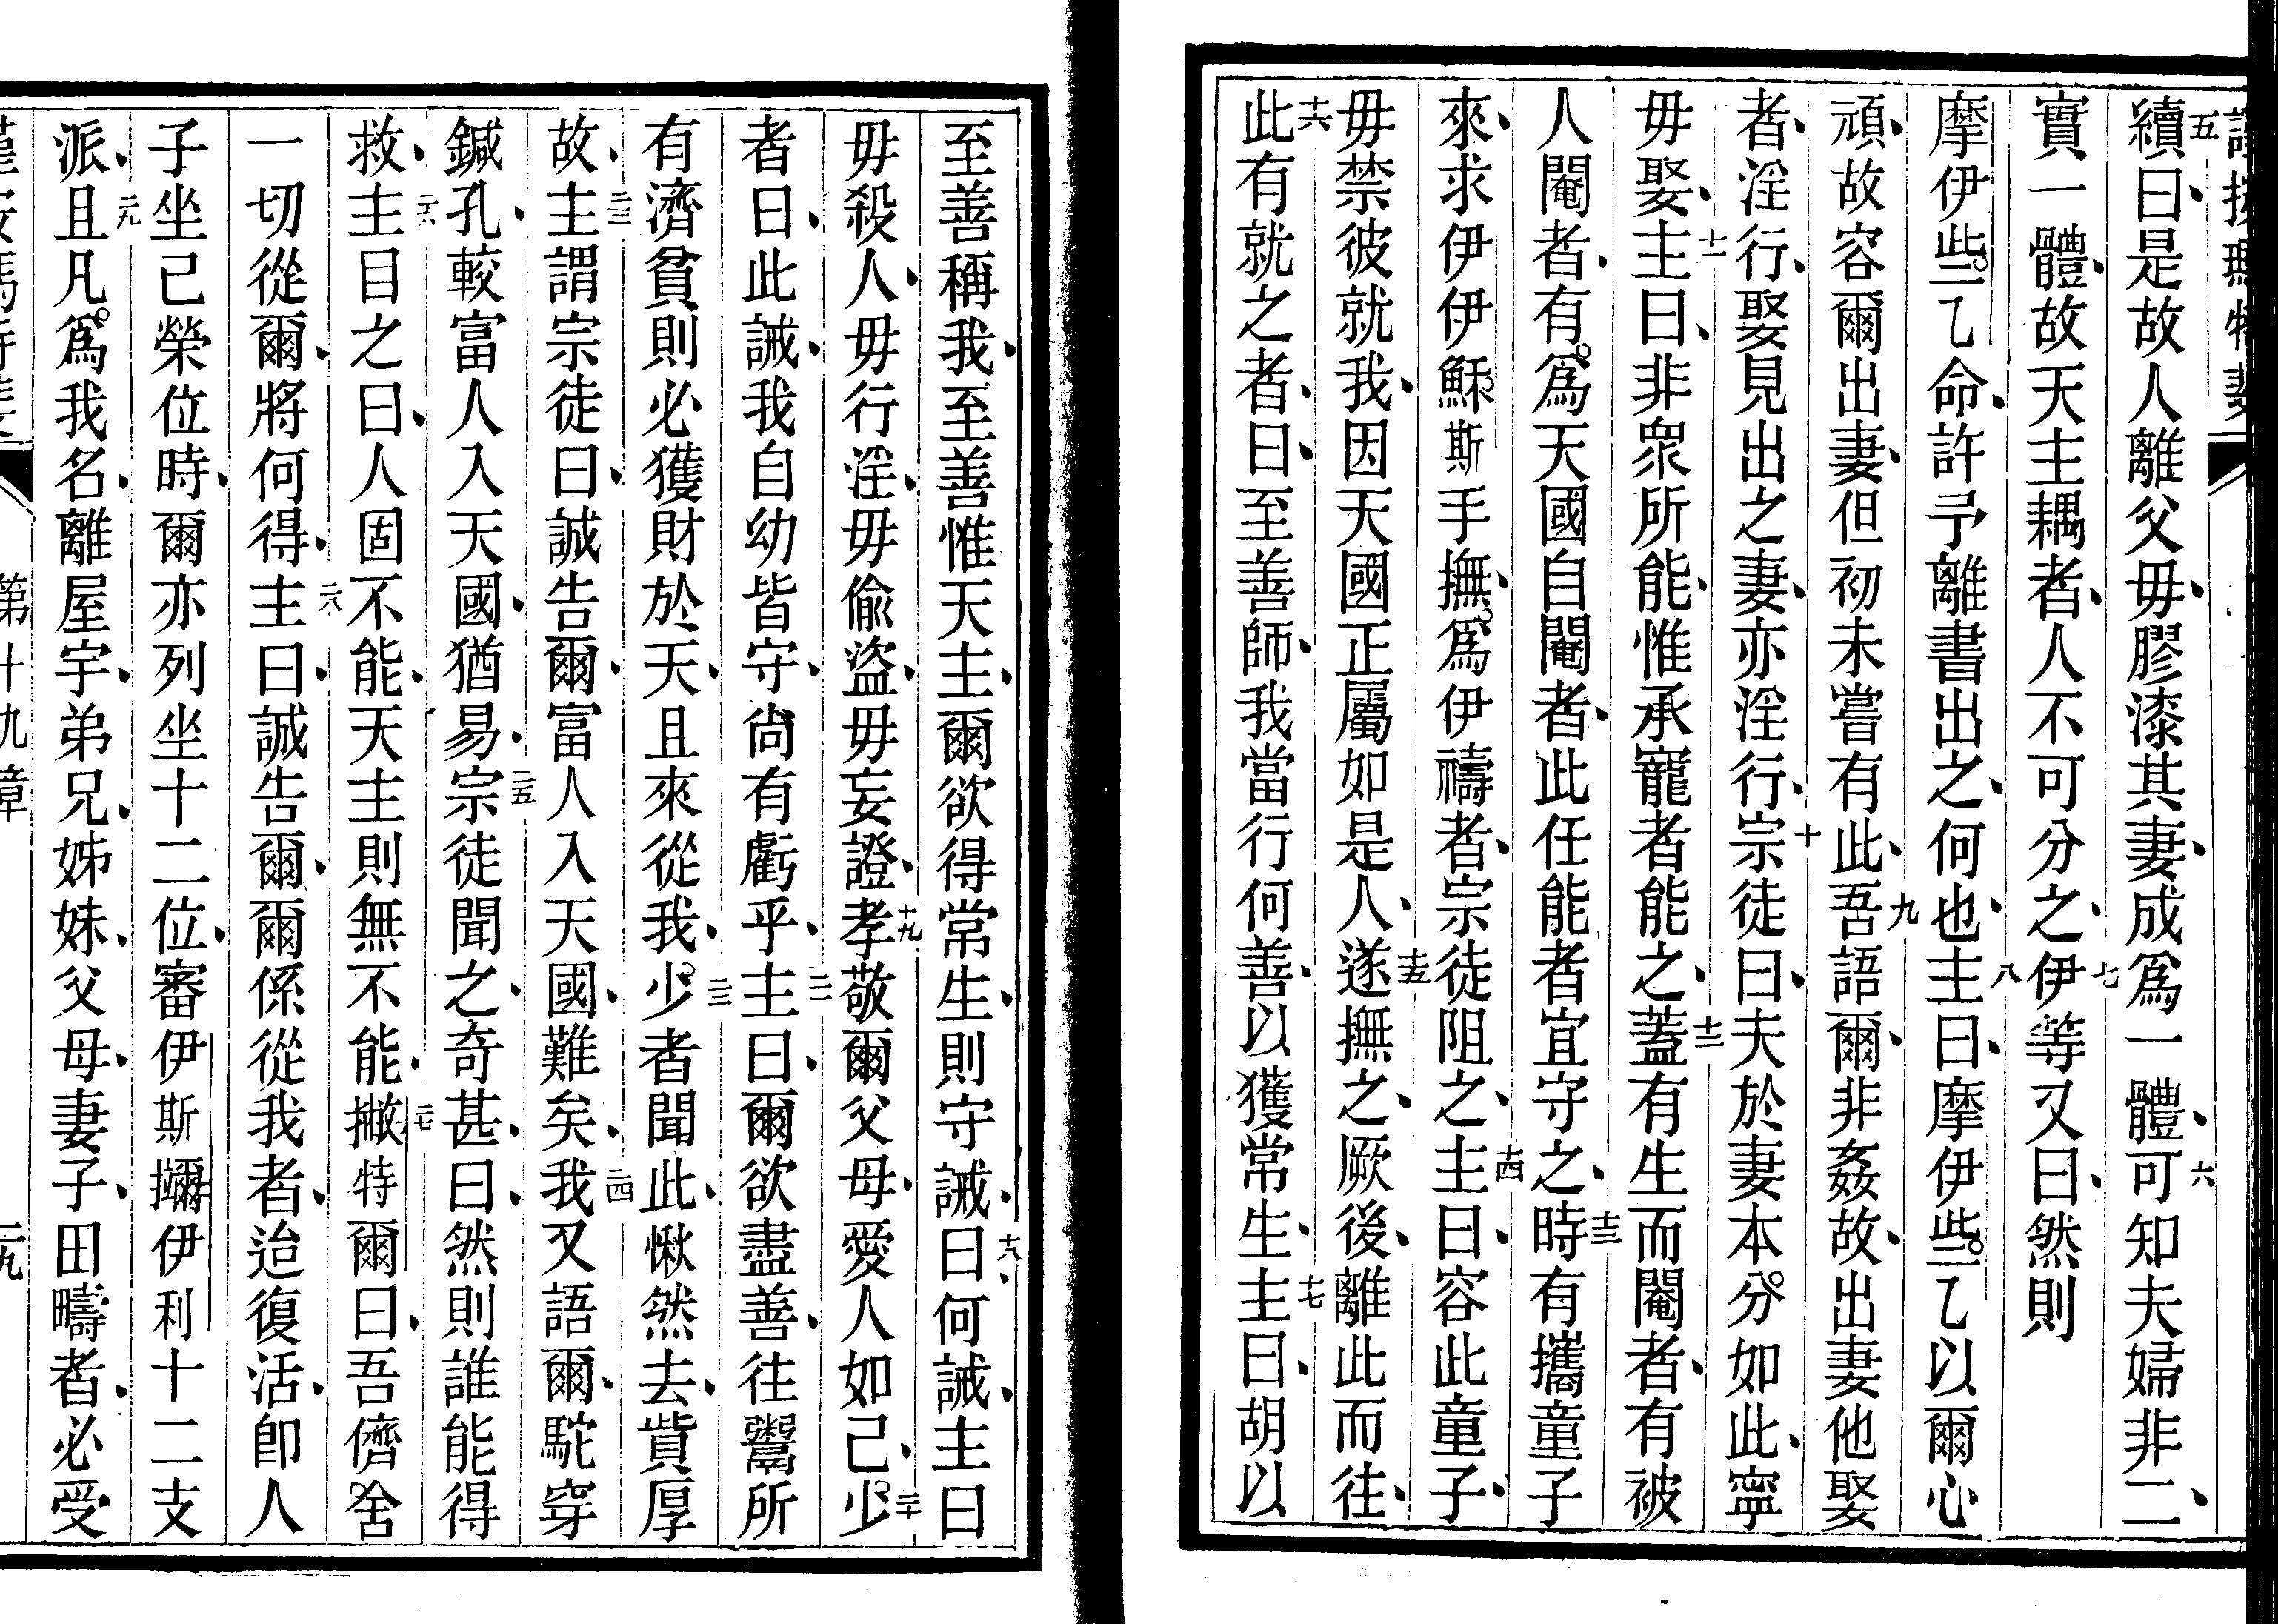 五續曰、是故人離父毋、膠漆其妻、成爲一體、六可知夫婦非二、
實一體、故天主耦者、人不可分之、七伊等又曰、然則
摩伊些乙命、許予離書出之、何也、八主曰、摩伊些乙以爾心
頑、故容爾出妻、但初未嘗有此、九吾語爾、非姦故、出妻他娶
者、淫行、娶見出之妻、亦淫行、十宗徒曰、夫於妻本分如此、寧
毋娶、十一主曰、非眾所能、惟承寵者能之、十二蓋有生而閹者、有被
人閹者、有爲天國自閹者、此任能者宜守之、十三時有攜童子
來、求伊伊穌斯手撫、爲伊禱者、宗徒阻之、十四主曰、容此童子、
毋禁彼就我、因天國正屬如是人、十五遂撫之、厥後、離此而往、
十六此有就之者、曰、至善師、我當行何善、以獲常生、十七主曰、胡以
至善稱我、至善惟天主、爾欲得常生、則守誡、十八曰、何誡、主曰
毋殺人、毋行淫、毋偷盜、毋妄證、十九孝敬爾父母、愛人如己、二十少
者曰、此誡、我自幼皆守、尚有虧乎、二一主曰、爾欲盡善、往鬻所
有濟貧則必獲財於天、且來從我、二二少者聞此、愀然去、貲厚
故、二三主謂宗徒曰、誠告爾、富人入天國、難矣、二四我又語爾、駝穿
鍼孔、較富人入天國、猶易、二五宗徒聞之、奇甚、曰、然則誰能得
救、二六主目之曰、人固不能、天主則無不能、二七撇特爾曰、吾儕舍
一切從爾、將何得、二八主曰、誠告爾、爾係從我者、迨復活、卽人
子坐己榮位時、爾亦列坐十二位、審伊斯擟伊利十二支
派、二九且凡爲我名、離屋宇、弟兄、姊妹、父母、妻子、田疇者、必受
第十九章
二九